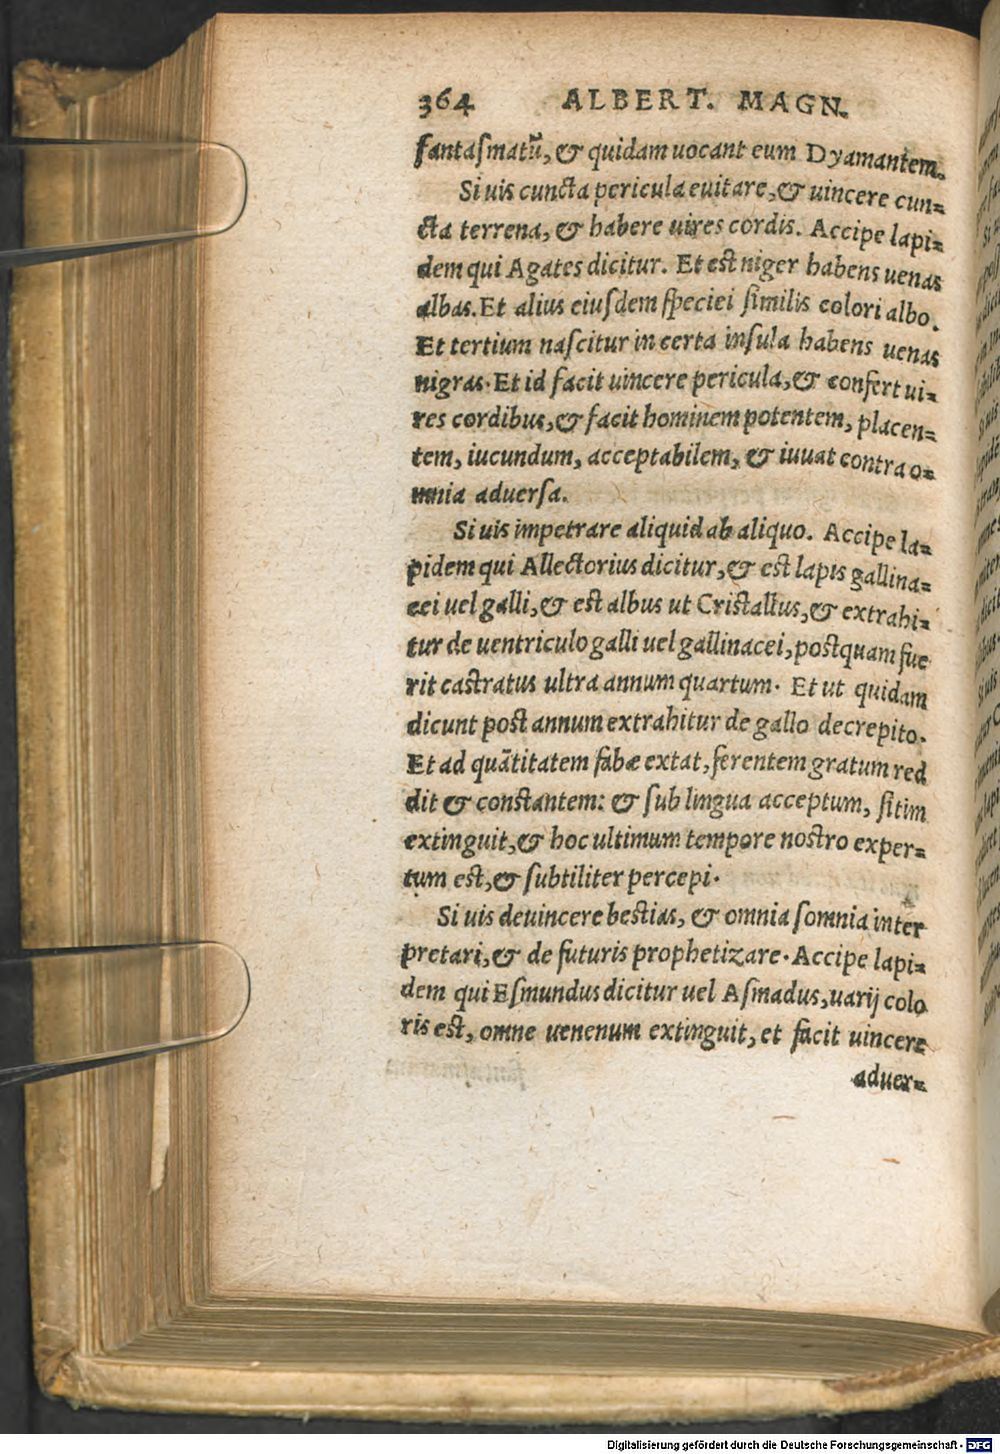 364 ALBERT. MAGN.
fantaſmatũ, & quidam uocant eum Dyamantem.
Si uis cuncta pericula euitare, & uincere cun=
cta terrena, & habere uires cordis. Accipe lapi=
dem qui Agates dicitur. Et est niger habens uenas
albas. Et alius eiuſdem ſpeciei ſimilis colori albo.
Et tertium naſcitur in certa inſula habens uenas
nigras. Et id facit uincere pericula, & confert ui=
res cordibus, & facit hominem potentem, placen=
tem, iucundum, acceptabilem, & iuuat contra o=
mnia aduerſa.
Si uis impetrare aliquid ab aliquo. Accipe la=
pidem qui Allectorius dicitur, & est lapis gallina=
cei uel galli, & est albus ut Cristallus, & extrahi=
tur de uentriculo galli uel gallinacei, postquam fue
rit castratus ultra annum quartum. Et ut quidam
dicunt post annum extrahitur de gallo decrepito.
Et ad quātitatem fabæ extat, ferentem gratum red
dit & constantem: & ſub lingua acceptum, ſitim
extinguit, & hoc ultimum tempore nostro exper=
tum est, & ſubtiliter percepi.
Si uis deuincere bestias, & omnia ſomnia inter
pretari, & de futuris prophetizare. Accipe lapi=
dem qui Eſmundus dicitur uel Aſmadus, uarij colo
ris est, omne uenenum extinguit, et facit uincere
aduer=
Digitalisierung gefördert durch die Deutsche Forschungsgemeinschaft - DFG